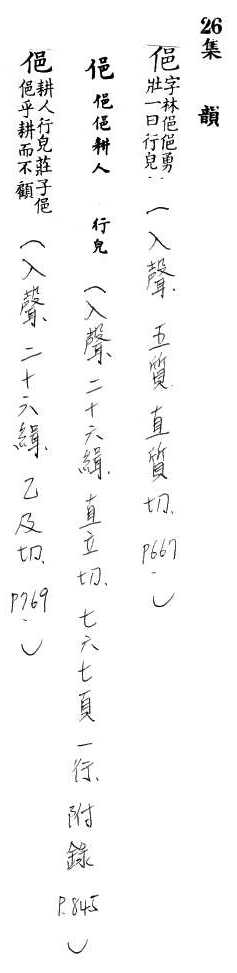 26集韻
俋 字林俋俋勇壯一曰行皃 (入聲. 五質. 直質切. P667.)
俋 俋俋耕人 行皃 (入聲、二十六緝. 直立切. 七六七頁一行、附錄 P.845)
俋 耕人行皃莊子俋俋乎耕而不顧 (入聲、二十六緝. 乙及切. P769.)